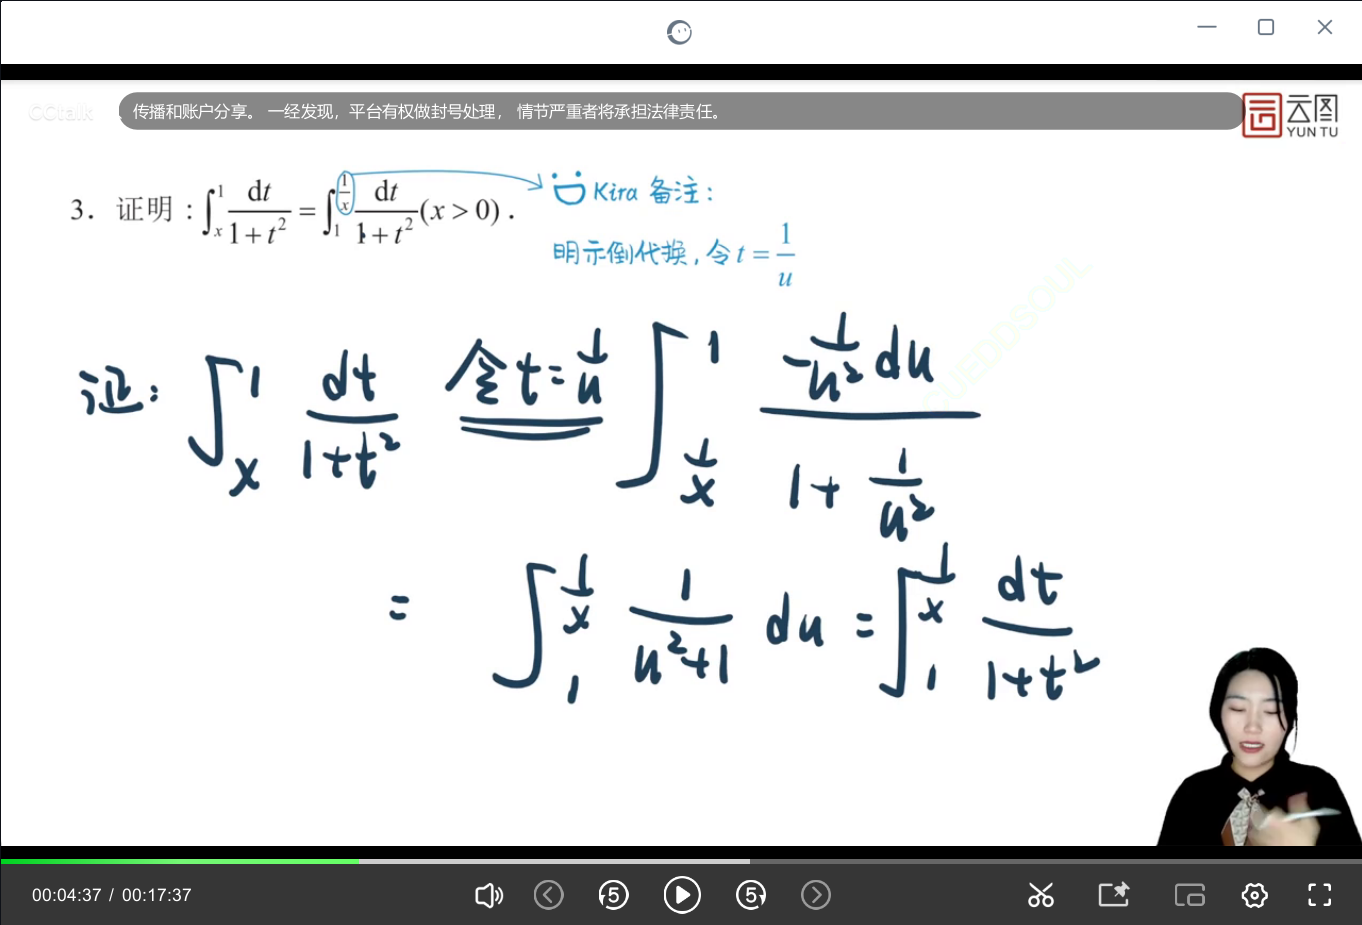 CCtalk
传播和账户分享。 一经发现，平台有权做封号处理， 情节严重者将承担法律责任。
云图
YUN TU
3. 证明：∫_x^1 dt/(1+t²) = ∫_1^(1/x) dt/(1+t²) (x>0).
Kira 备注：
明示倒代换，令 t = 1/u
CUEDDSOUL
证： ∫_x^1 dt/(1+t²) 令t=1/u ∫_(1/x)^1 (-1/u² du)/(1+1/u²)
= ∫_1^(1/x) 1/(u²+1) du = ∫_1^(1/x) dt/(1+t²)
00:04:37 / 00:17:37
5
5